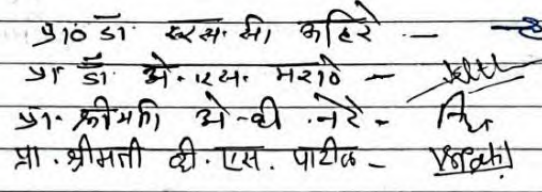 प्रा० डॉ. एस. सी. अहिरे –
प्रा डॉ. अे. एस. मराठे –
प्रा. श्रीमती अे-वी. नेरे –
प्रा. श्रीमती व्ही. एस. पाटील –